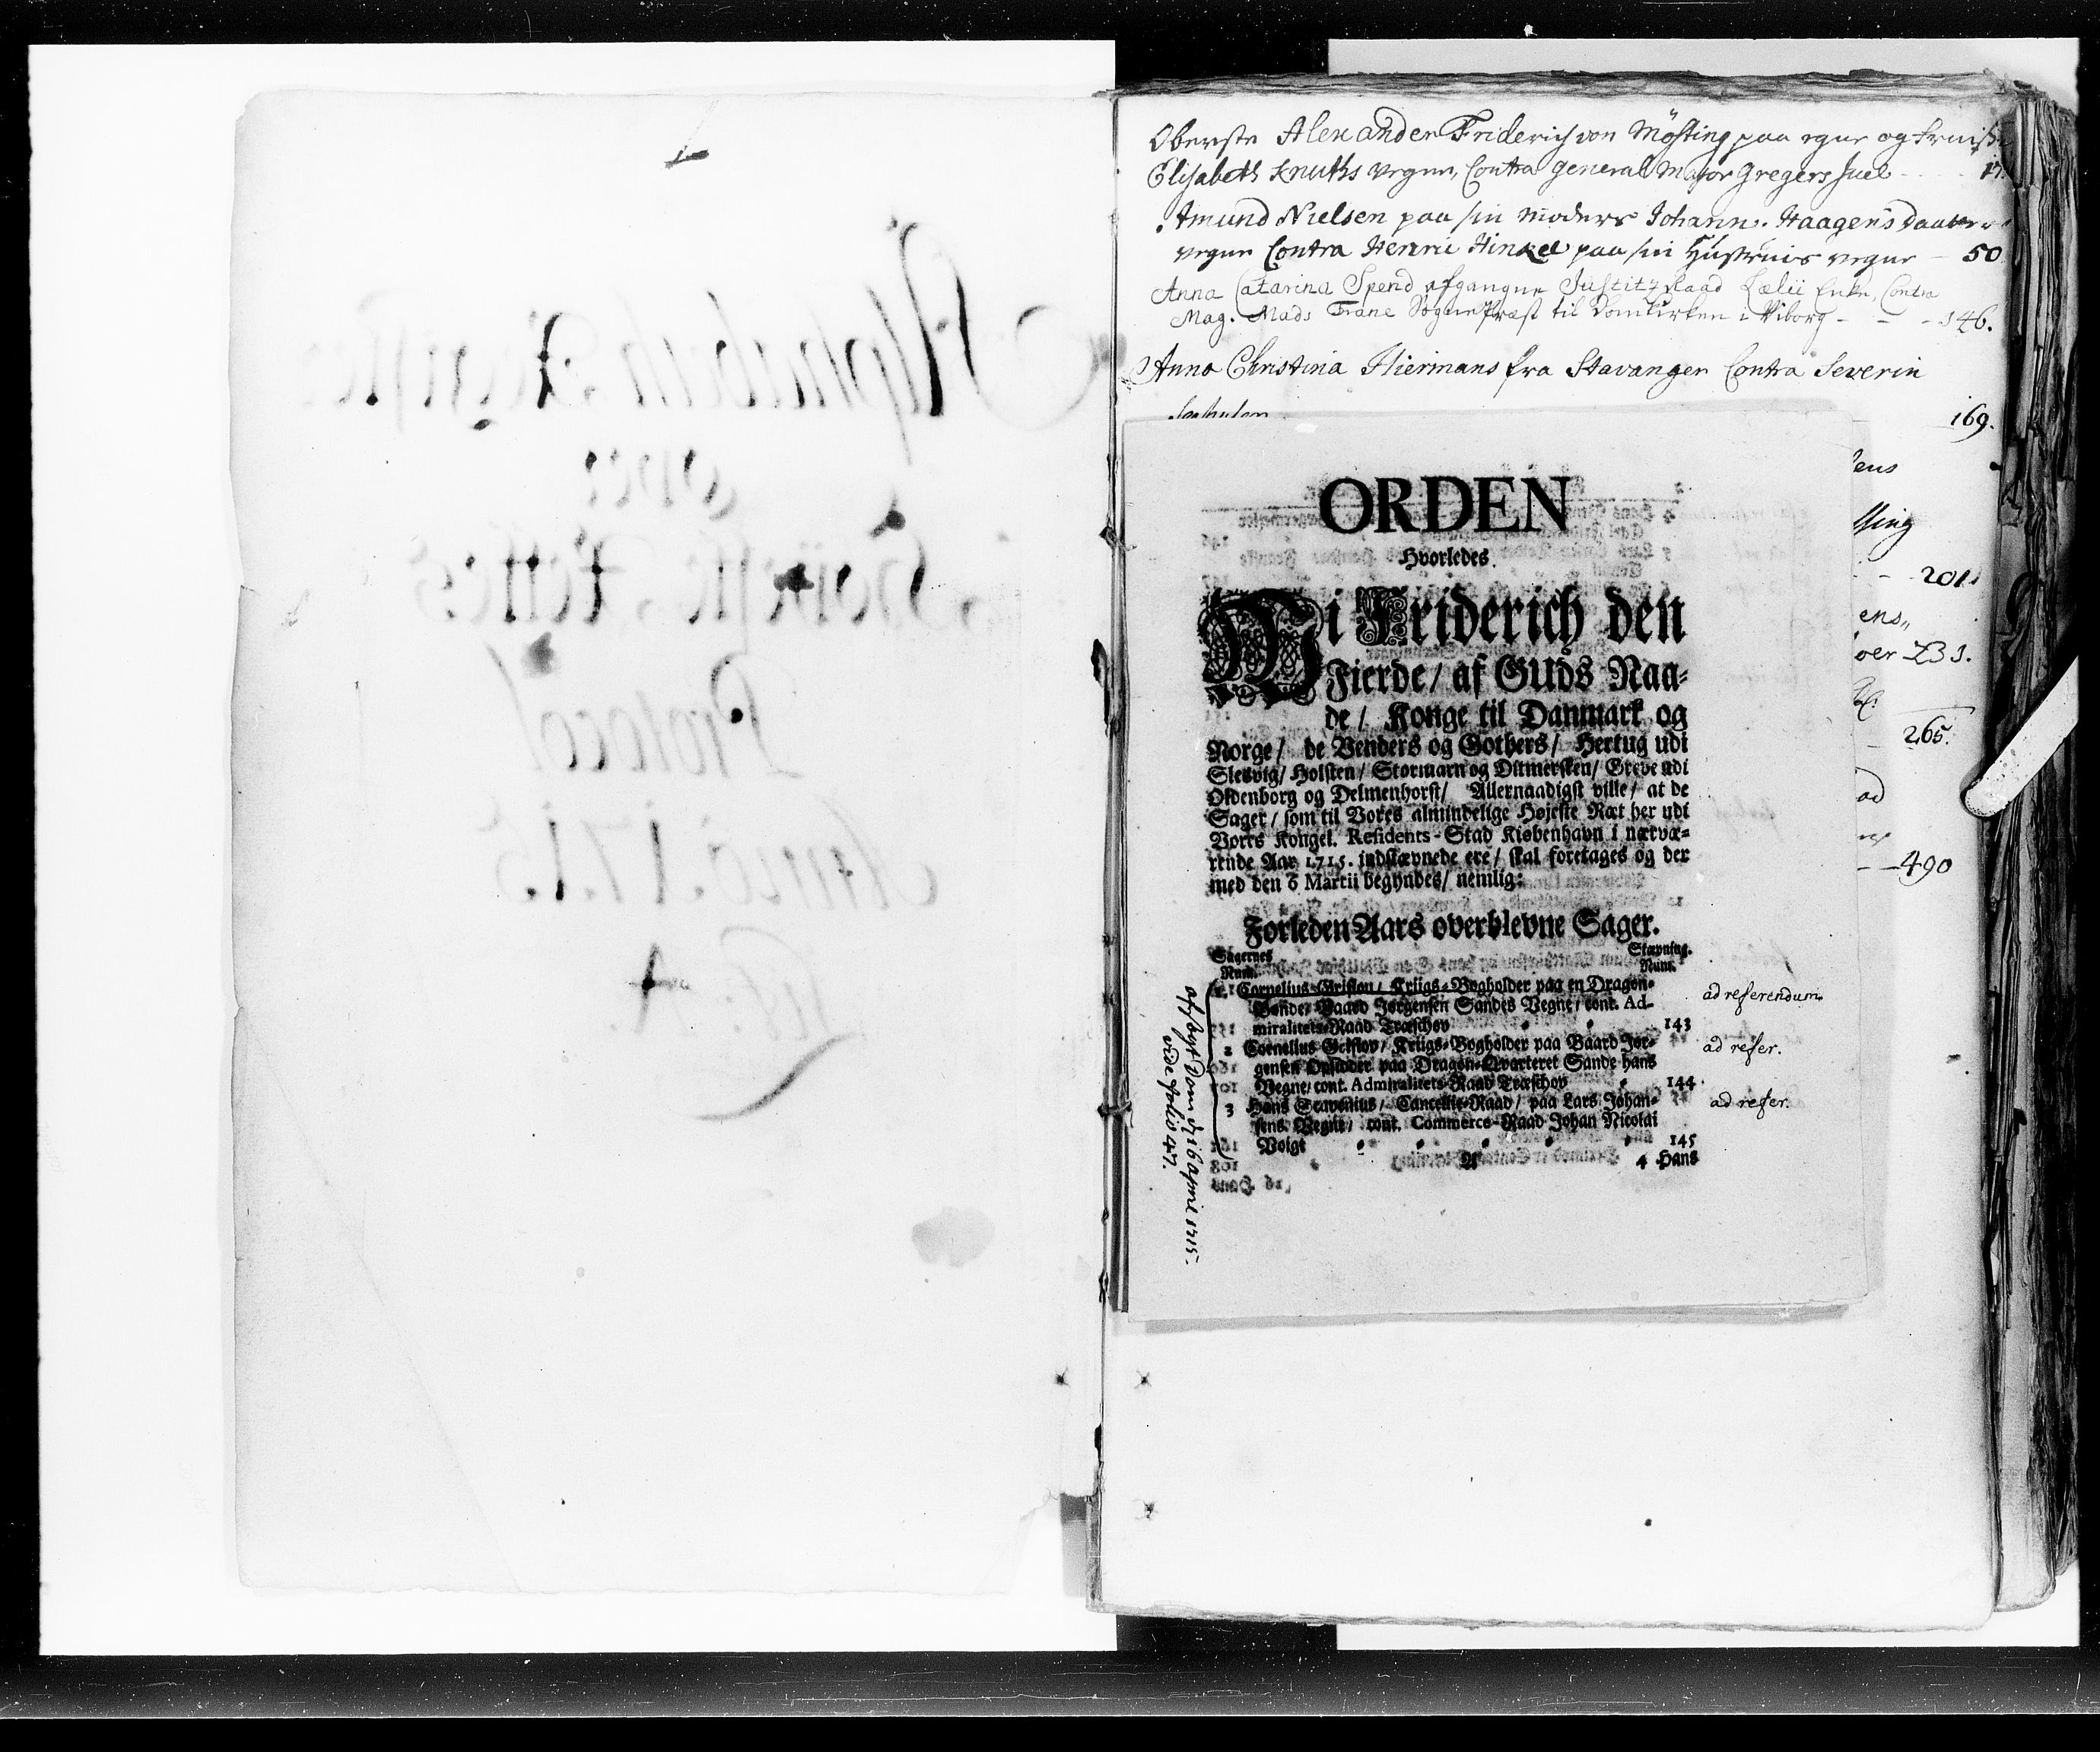 Oberste Alexander Friderich von Møsting paa egne og
Elisabeth Knuths vegne, Contra General Major Gregers Juel - - - 17.
Amund Nielsen paa sin Moders Johann. Haagens Daatters
vegne Contra Henric Hinkel paa sin Hustrues vegne - 50
Anna Catarina Spend afgangne Justitz Raad Lælii Enke, Contra
Mag. Mads Trane Sogne Præst til Domkirken i Viborg - - - 146.
Anna Christina Hiermans fra Stavanger Contra Severin
169.
ens
201.
ens,,
oer 231.
265.
ad
- - 490
ORDEN
Hvorledes.
Vi Friderich den
Fierde/ af GUds Naa-
de/ Konge til Danmark og
Norge/ de Venders og Gothers/ Hertug udi
Slesvig/ Holsten/ Stormarn og Ditmersken/ Greve udi
Oldenborg og Delmenhorst/ Allernaadigst ville/ at de
Sager/ som til Vores almindelige Højeste Ræt her udi
Vores Kongel. Residents-Stad Kiøbenhavn i nærvæ-
rende Aar 1715. indstævnede ere/ skal foretages og der
med den 6 Martii begyndes/ nemlig:
Forleden Aars overblevne Sager.
Sagernes Stævning.
Num. Num.
1 Cornelius Griflow/ Kriigs-Bogholder paa en Dragon-
Bonde/ Baard Jørgensen Sandes Vegne/ cont. Ad-
miralitets-Raad Træschov 143
ad referendum.
2 Cornelius Griflov/ Kriigs-Bogholder paa Baard Jør-
gensen Opsidder paa Dragon-Qvarteret Sande hans
Vegne/ cont. Admiralitets-Raad Træschov 144
ad refer.
3 Hans Stavenius/ Cancellie-Raad/ paa Lars Johan-
sens Vegne/ cont. Commerce-Raad Johan Nicolai
Voigt 145
ad refer.
A 4 Hans
afsagt Dom d. 16 April 1715.
vide folio 47.
Alphabeth Register
over
Høyeste Rettes
Protocol
Anno 1715
Lit: A